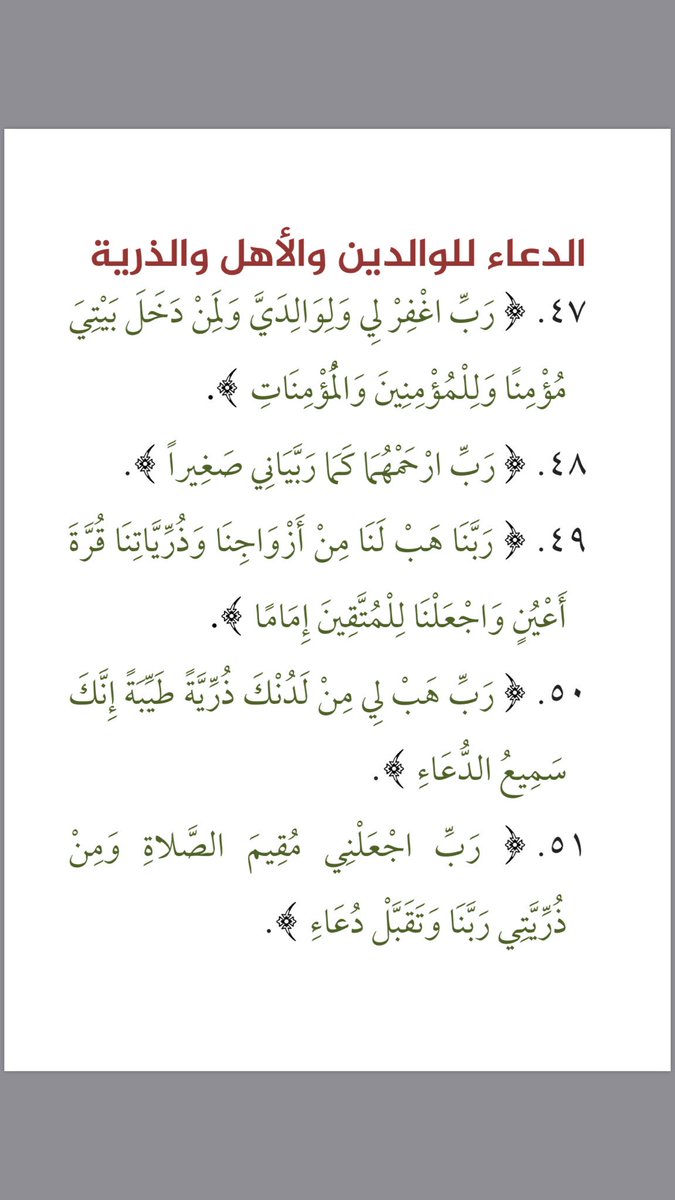 الدعاء للوالدين والأهل والذرية
٤٧. ﴿ رَبِّ اغْفِرْ لِي وَلِوَالِدَيَّ وَلِمَنْ دَخَلَ بَيْتِيَ
مُؤْمِنًا وَلِلْمُؤْمِنِينَ وَالْمُؤْمِنَاتِ ﴾.
٤٨. ﴿ رَبِّ ارْحَمْهُمَا كَمَا رَبَّيَانِي صَغِيراً ﴾.
٤٩. ﴿ رَبَّنَا هَبْ لَنَا مِنْ أَزْوَاجِنَا وَذُرِّيَّاتِنَا قُرَّةَ
أَعْيُنٍ وَاجْعَلْنَا لِلْمُتَّقِينَ إِمَامًا ﴾.
٥٠. ﴿ رَبِّ هَبْ لِي مِنْ لَدُنْكَ ذُرِّيَّةً طَيِّبَةً إِنَّكَ
سَمِيعُ الدُّعَاءِ ﴾.
٥١. ﴿ رَبِّ اجْعَلْنِي مُقِيمَ الصَّلاةِ وَمِنْ
ذُرِّيَّتِي رَبَّنَا وَتَقَبَّلْ دُعَاءِ ﴾.